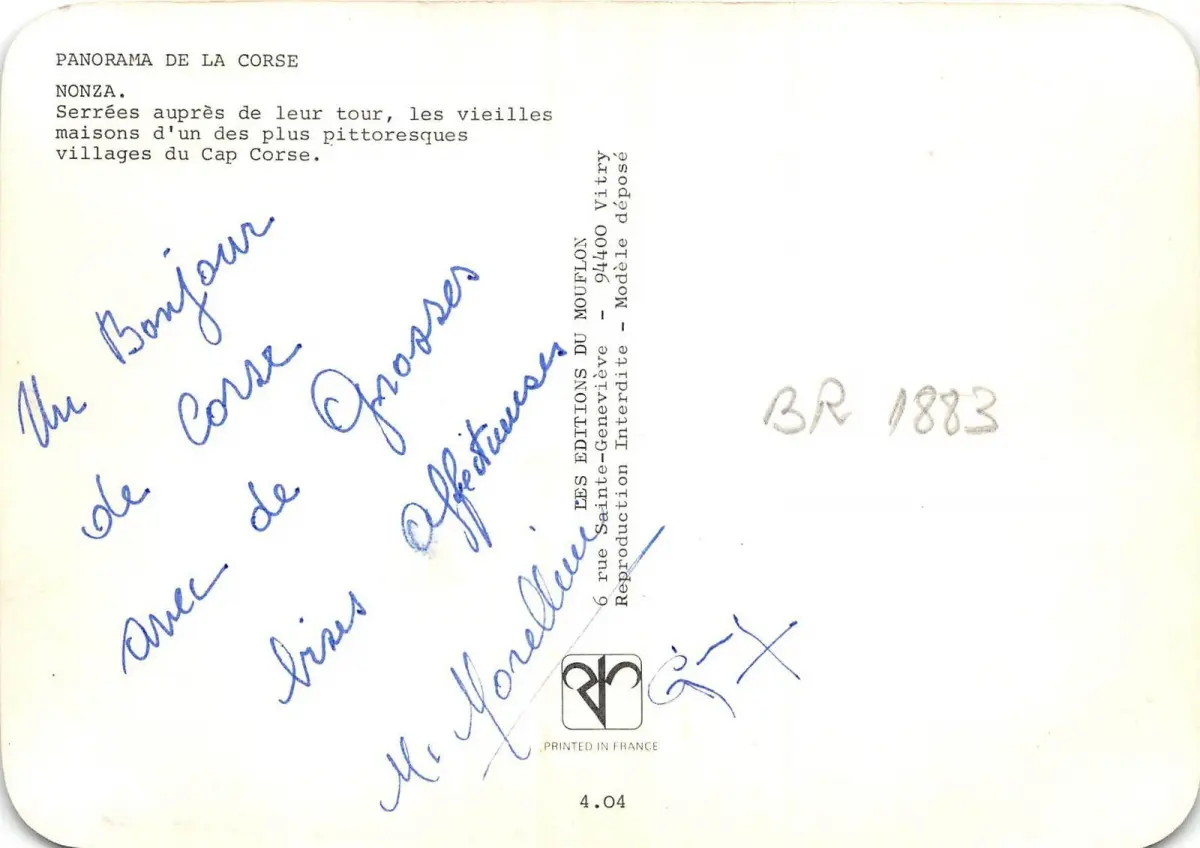 PANORAMA DE LA CORSE
NONZA.
Serrées auprès de leur tour, les vieilles
maisons d'un des plus pittoresques
villages du Cap Corse.
Un Bonjour
de Corse
avec de Grosses
bises affectueuses
M. Morellini
LES EDITIONS DU MOUFLON
6 rue Sainte-Geneviève - 94400 Vitry
Reproduction Interdite - Modèle déposé
BR 1883
PRINTED IN FRANCE
4.04